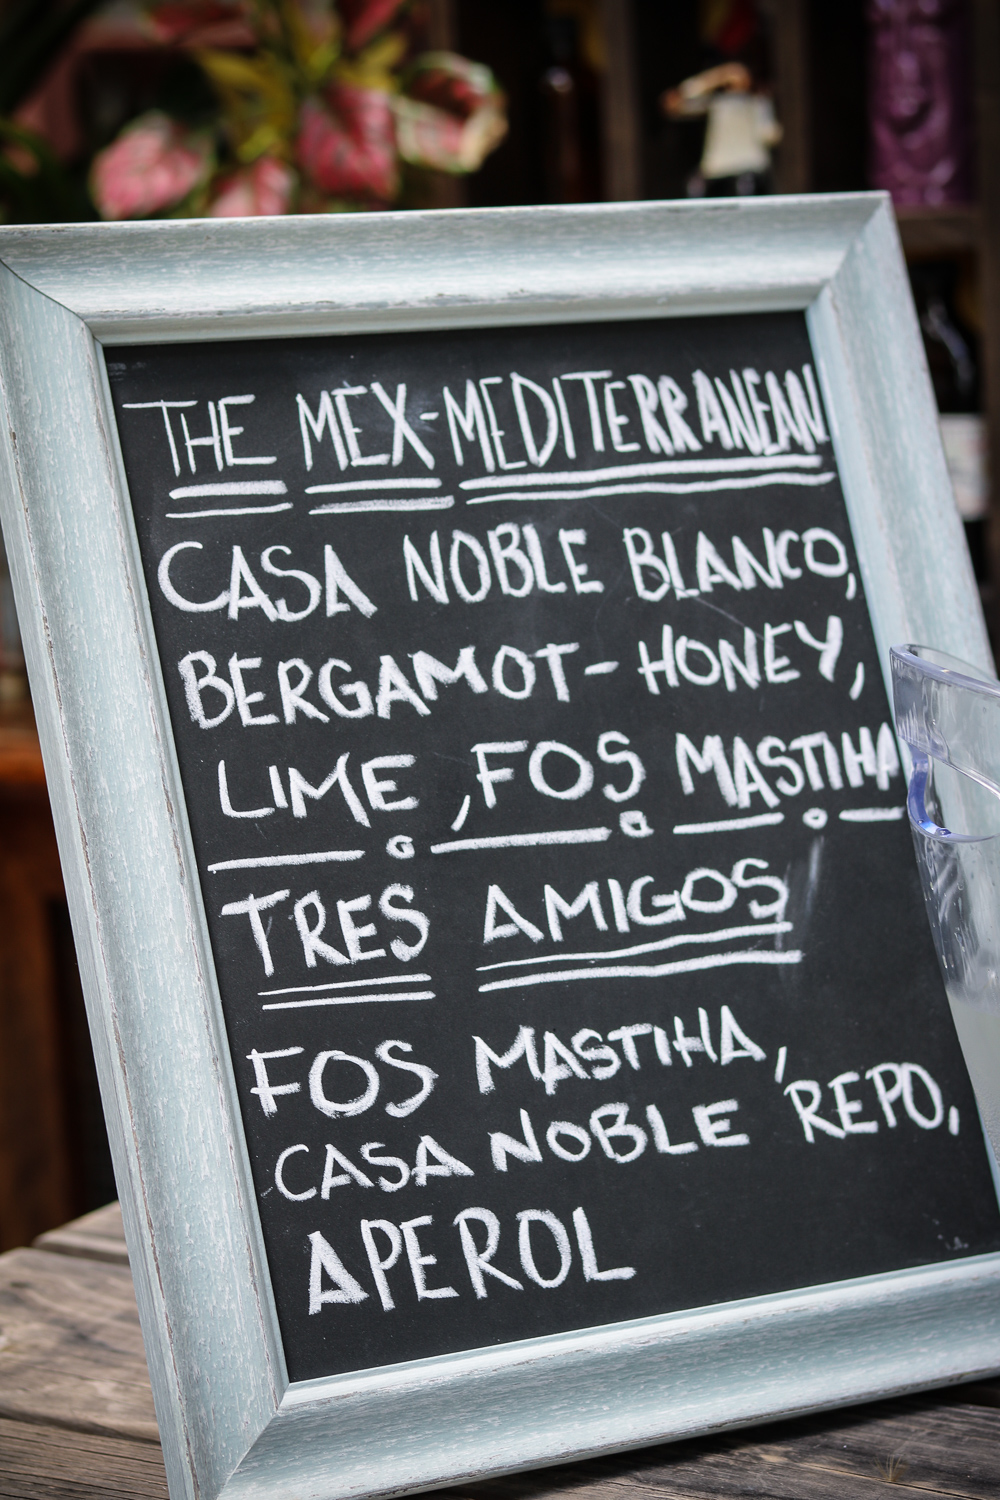 THE MEX-MEDITERRANEAN
CASA NOBLE BLANCO,
BERGAMOT-HONEY,
LIME, FOS MASTIHA
TRES AMIGOS
FOS MASTIHA,
CASA NOBLE REPO,
APEROL